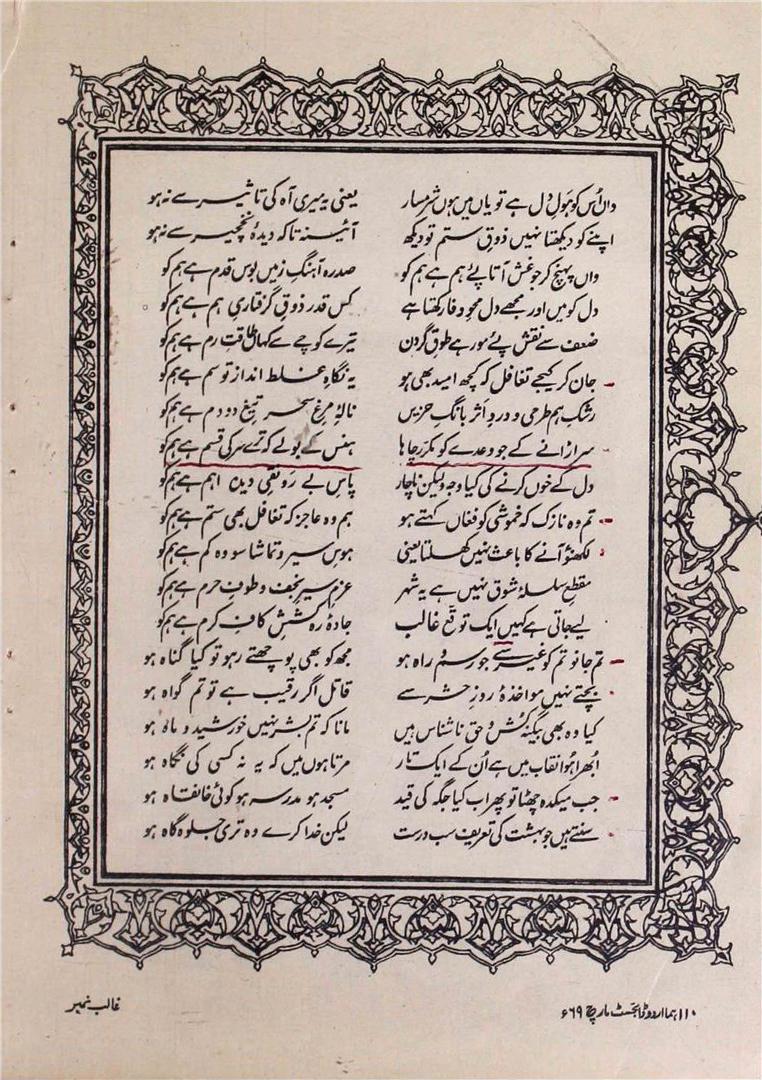 واں اُس کو ہَولِ دل ہے تو یاں میں ہوں شرمسار یعنی یہ میری آہ کی تاثیر سے نہ ہو
اپنے کو دیکھتا نہیں ذوقِ ستم تو دیکھ آئینہ تاکہ دیدۂ نخچیر سے نہ ہو
واں پہنچ کر جو غش آتا پئے ہم ہے ہم کو صدرہ آہنگِ زمیں بوسِ قدم ہے ہم کو
دل کو میں اور مجھے دل محوِ وفا رکھتا ہے کس قدر ذوقِ گرفتاریِ ہم ہے ہم کو
ضعف سے نقشِ پئے مور ہے طوقِ گردن تیرے کوچے سے کہاں طاقتِ رم ہے ہم کو
جان کر کیجے تغافل کہ کچھ امید بھی ہو یہ نگاہِ غلط انداز تو سم ہے ہم کو
رشکِ ہم طرحی و دردِ اثرِ بانگِ حزیں نالۂ مرغِ سحر تیغِ دو دم ہے ہم کو
سر اڑانے کے جو وعدے کو مکرر چاہا ہنس کے بولے کہ ترے سر کی قسم ہے ہم کو
دل کے خوں کرنے کی کیا وجہ ولیکن ناچار پاسِ بے رونقیِ دیدہ اہم ہے ہم کو
تم وہ نازک کہ خموشی کو فغاں کہتے ہو ہم وہ عاجز کہ تغافل بھی ستم ہے ہم کو
لکھنؤ آنے کا باعث نہیں کھلتا یعنی ہوسِ سیر و تماشا سو وہ کم ہے ہم کو
مقطعِ سلسلۂ شوق نہیں ہے یہ شہر عزمِ سیرِ نجف و طوفِ حرم ہے ہم کو
لیے جاتی ہے کہیں ایک توقع غالب جادۂ رہ کششِ کافِ کرم ہے ہم کو
تم جانو تم کو غیر سے جو رسم و راہ ہو مجھ کو بھی پوچھتے رہو تو کیا گناہ ہو
بچتے نہیں مواخذۂ روزِ حشر سے قاتل اگر رقیب ہے تو تم گواہ ہو
کیا وہ بھی بیگنہ کش و حق ناشناس ہیں مانا کہ تم بشر نہیں خورشید و ماہ ہو
ابھرا ہُوا نقاب میں ہے اُن کے ایک تار مرتا ہوں میں کہ یہ نہ کسی کی نگاہ ہو
جب میکدہ چھٹا تو پھر اب کیا جگہ کی قید مسجد ہو مدرسہ ہو کوئی خانقاہ ہو
سنتے ہیں جو بہشت کی تعریف سب درست لیکن خدا کرے وہ تری جلوہ گاہ ہو
۱۱۰ ہما اردو ڈائجسٹ مارچ ۶۹ء غالب نمبر